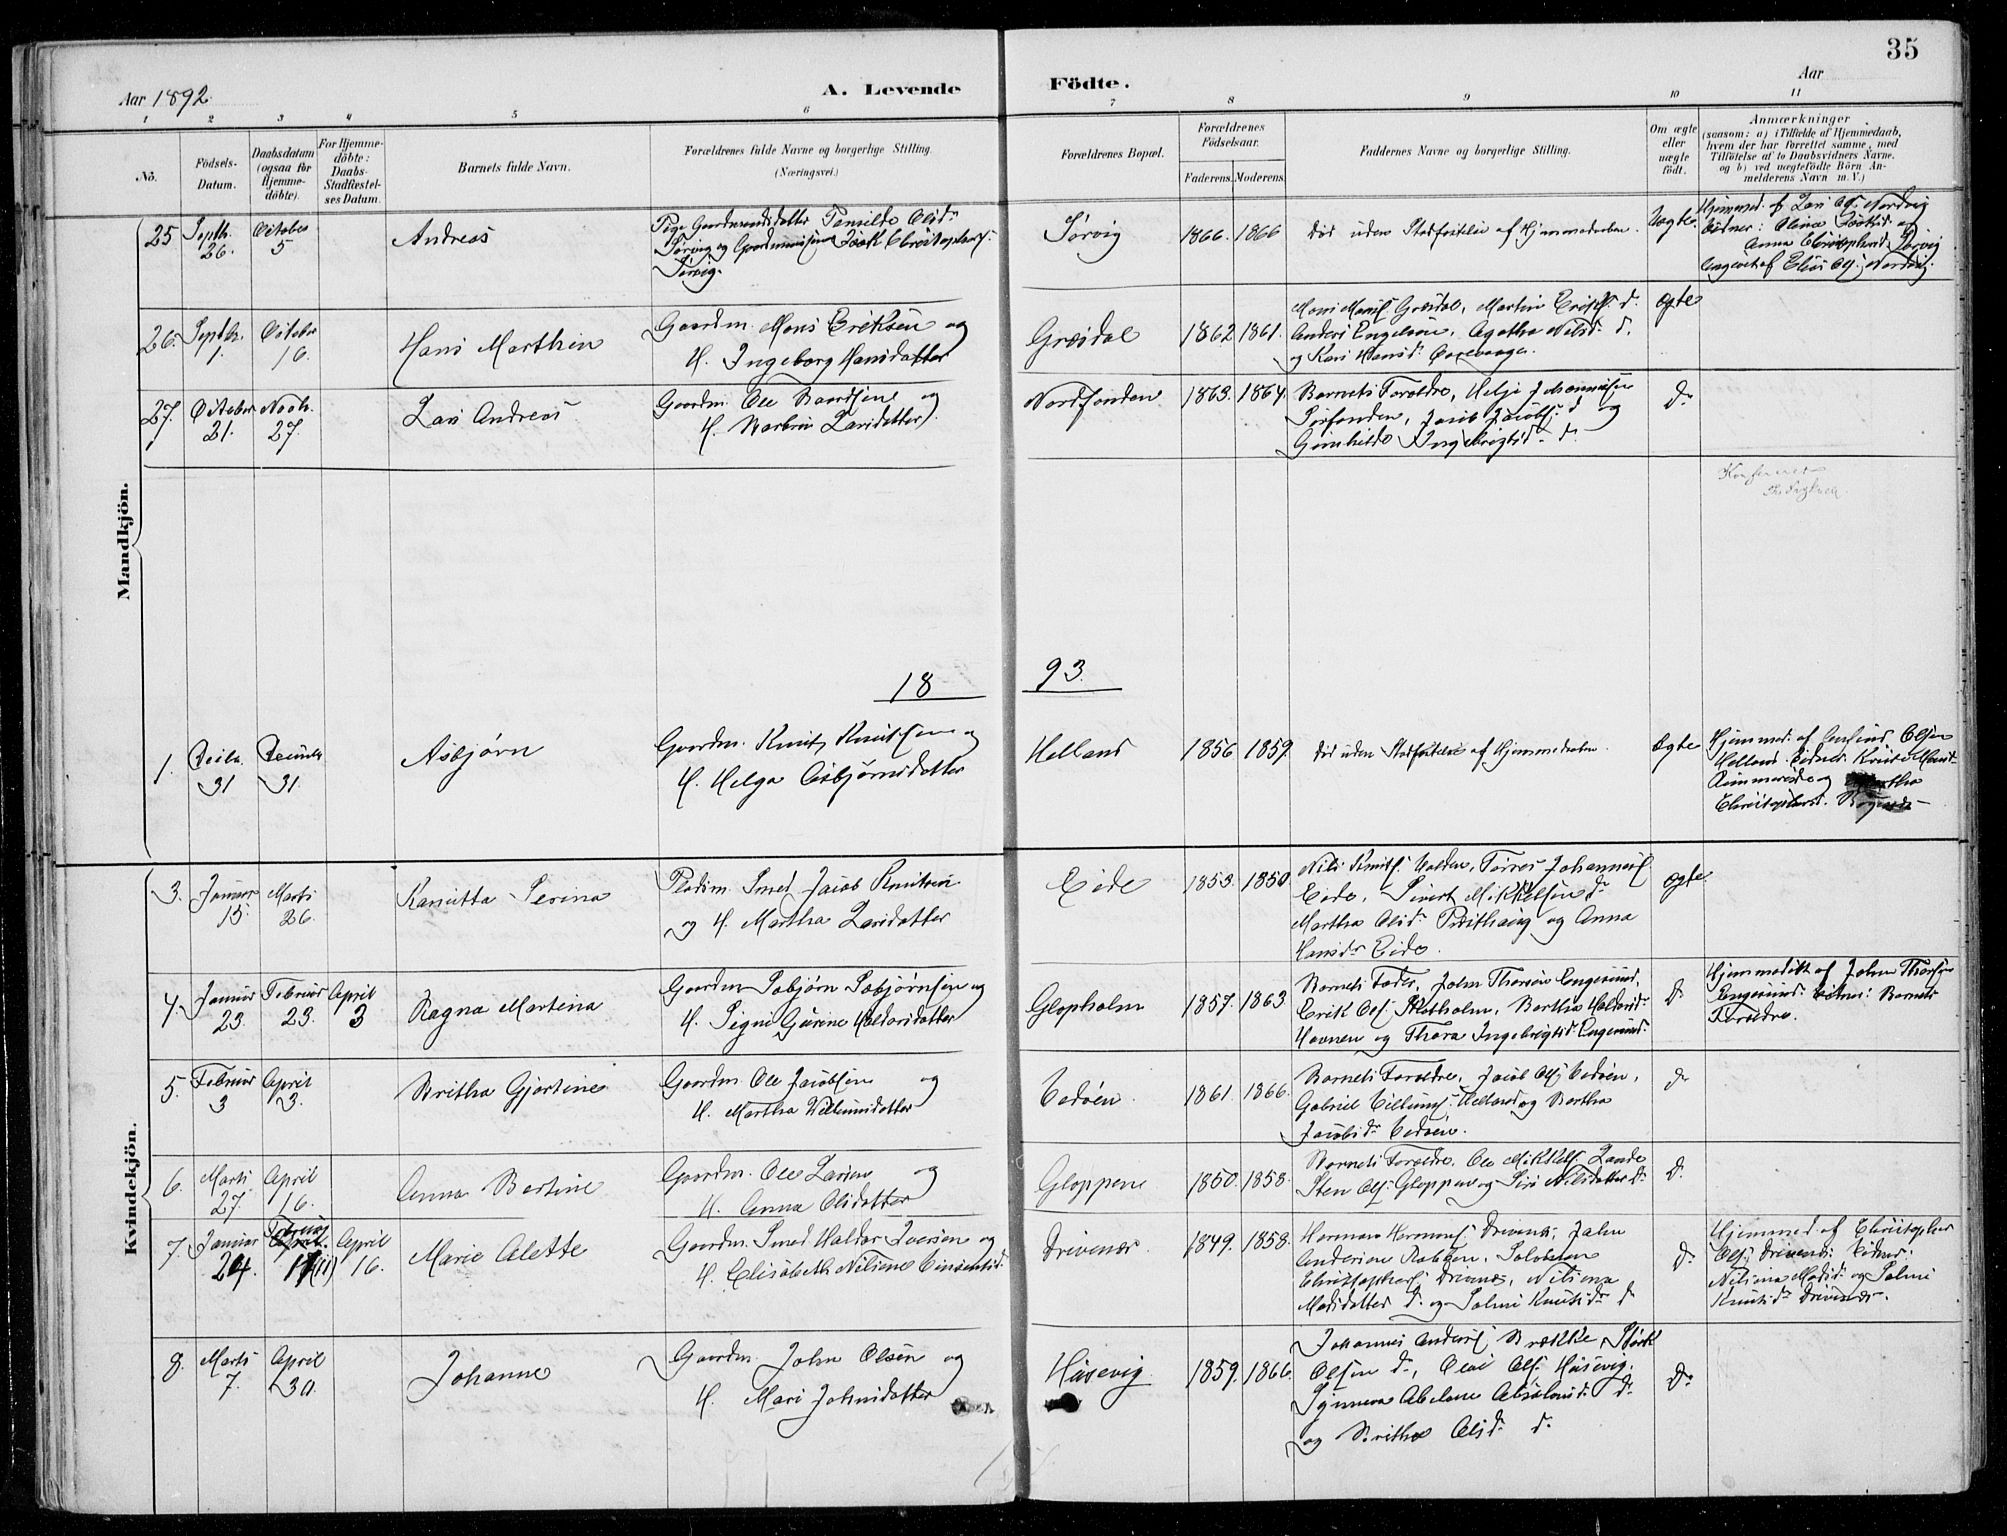 35
Aar 1892.
A. Levende
Födte.
Aar
1 2 3 4 5 6 7 8 9 10 11
No.
Födsels-Datum.
Daabsdatum (ogsaa for Hjemmedöbte).
For Hjemmedöbte: Daabs-Stadfæstelses Datum.
Barnets fulde Navn.
Forældrenes fulde Navne og borgerlige Stilling. (Næringsvei.)
Forældrenes Bopæl.
Forældrenes Födselsaar.
Faderens. Moderens.
Faddernes Navne og borgerlige Stilling.
Om ægte eller uægte födt.
Anmærkninger
(saasom: a) i Tilfælde af Hjemmedaab, hvem der har forrettet samme, med Tilföielse af to Daabsvidners Navne. og b) ved uægtefödte Börn Anmelderens Navn m. V.)
Mandkjön.
25 Septb. 26. October 5 Andreas
Pige
Sørvig og
Sørvig.
Sørvig 1866. 1866 død uden Stadfæstelse af Hjemmedaaben. Uægte.
Hjemmed. af Lars Nordvig
26. Septbr. 1. Octobr 16. Hans Marthin
Gaardm. Mons Eriksen og
H. Ingeborg Hansdatter
Græsdal 1862 1861.
Mons Monsf. Græsdal, Martin Eriksf. do.
Anders Engelsen, Agatha Nilsd. do.
og Kari Hansd.
ægte
27. October 21. Novb. 27. Lars Andreas
Gaardm. Ole Baardsen og
H. Barbra Larsdatter.
Nordfonden 1863. 1864.
Barnets Forældre, Helje Johannesen
Sørfonden, Jacob Jacobsf. do og
Gunhilde Ingebrigtsd. do.
do
18 93.
1. Decbr. 31 Decemb. 31. Asbjørn
Gaardm. Knut Knutsen og
H. Helga Asbjørnsdatter
Helland 1856 1859. død uden Stadfæstelse af Hjemmedaaben. Ægte
Hjemmed. af Olsen
Helland.
Christophersd.
Kvindekjön.
3. Januar 15. Marts 26. Kanutta Serina
Pladsm. Smed Jacob Knutsen
og H. Martha Larsdatter
Eide 1853. 1850.
Nils Knutsf. Halden, Torres Johannesf.
Eide, Sivert Mikkelsen do
Martha Olsd. og Anna
Hansdr. Eide.
ægte.
4. Januar 23. Februar 23. April 3 Ragna Martina
Gaardm. Asbjørn Asbjørnsen og
H. Signe Gurine Haldorsdatter
Glopholm 1857. 1863
Barnets Fader, John Thorsen Engesund,
Erik Olsf. Glopholm, Bertha Haldorsd.
Havnen og Thora Ingebrigtsd. Engesund.
do
Hjemmedöbt af John Thorsen
Engesund. Vidner: Barnets
Forældre.
5. Februar 3 April 3. Britha Gjertine
Gaardm. Ole Jacobsen og
H. Martha Villumsdatter
Vedøen. 1861. 1866.
Barnets Forældre, Jacob Olsf. Vedøen,
Gabriel Villumsf. Helland og Bertha
Jacobsd. Vedøen.
do
6. Marts 27. April 16. Anna Bertine
Gaardm. Ole Larsen og
H. Anna Olsdatter
Gloppen 1850. 1858.
Barnets Forældre, Ole Mikkelsf. Lande
Sten Olsf. Gloppen og Siri Nilsdatter do
do.
7. Januar 24. Februar 11(11) April 16. Marie Alette
Gaardm. Smed Haldor Iversen og
H. Elisabeth Nilsine Vinsentsd.
Drivenæs. 1849. 1858.
Herman Hermansf. Drivenæs, John
Andersen
Christophersf. Drivenæs, Nilsina
Madsdatter do. og Salmi Knutsdr. do
do.
Hjemmed. af Christopher
Olsf. Drivenæs. Vidner:
Nilsina Madsd. og Salmi
Knutsdr. Drivenæs.
8. Marts 7. April 30. Johanne
Gaardm. John Olsen og
H. Mari Johnsdatter
Husevig. 1859. 1866.
Johannes Andersf. Brække, Størk
Olsen do, Olai Olsf. Husevig.
Synneva Abelone Absalonsd. do
og Britha Olsd. do
do.